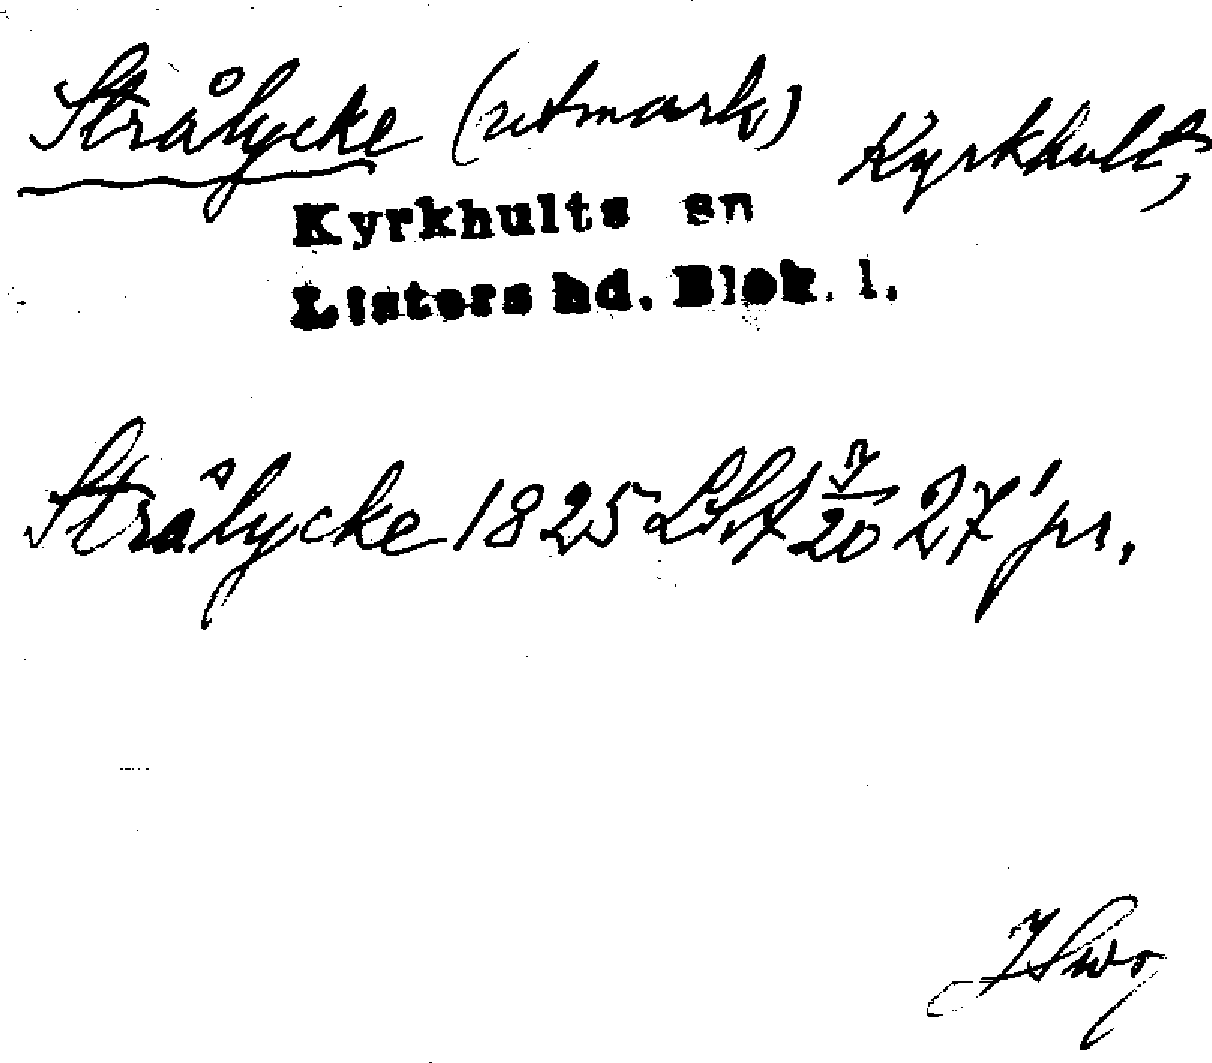 Strålycke (utmark) Kyrkhult,
Kyrkhults sn
Listers hd. Blek. l.
Strålycke 1825 LSA 7/20 27 'pr.